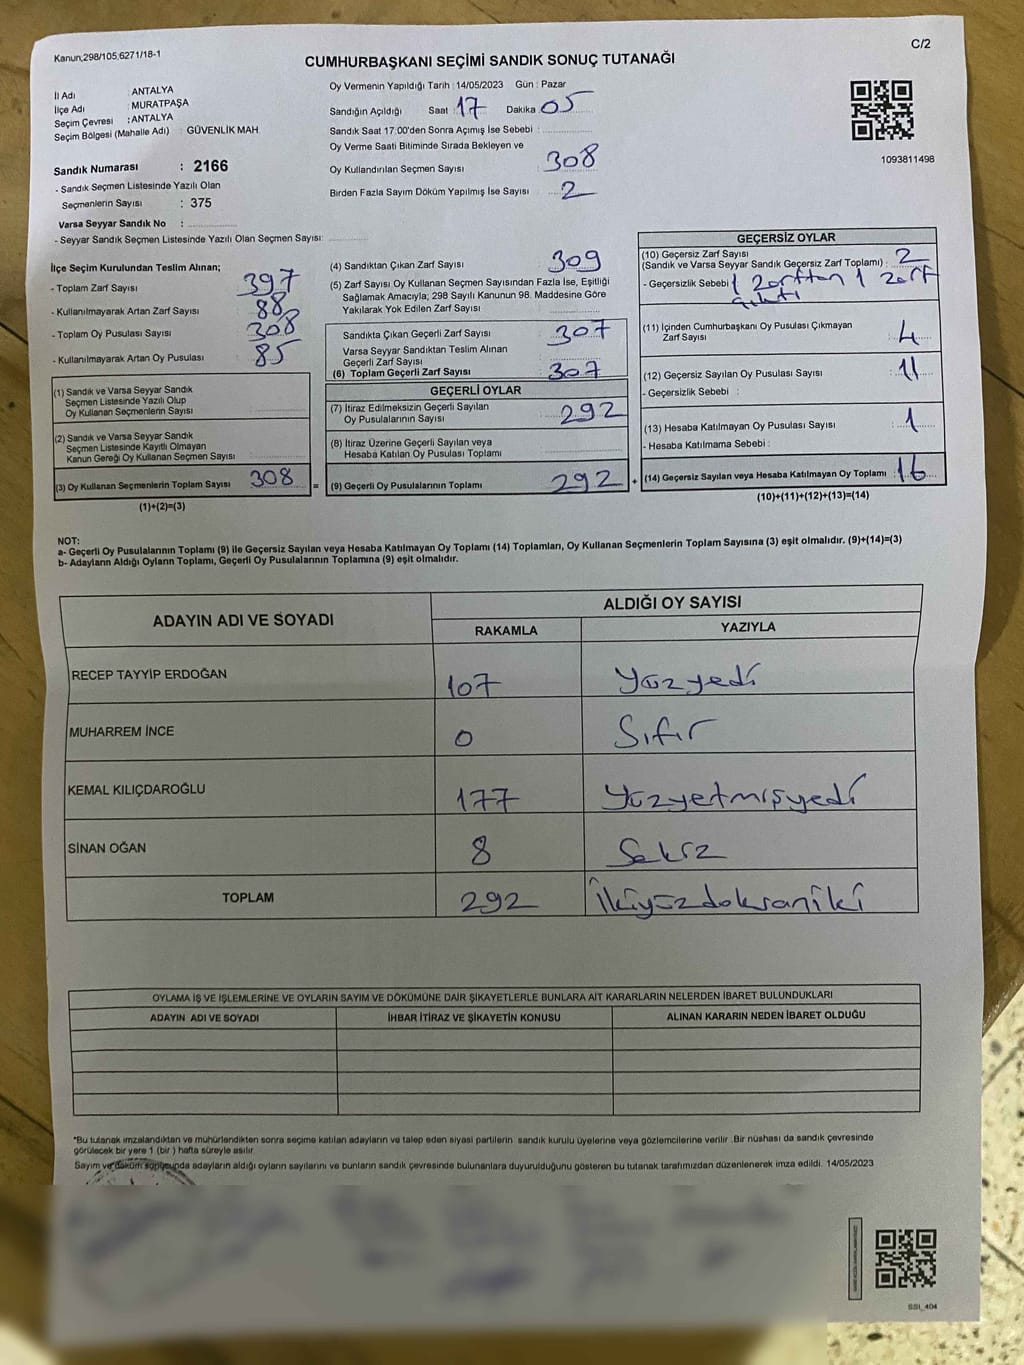 Kanun;298/105;6271/18-1
C/2
CUMHURBAŞKANI SEÇİMİ SANDIK SONUÇ TUTANAĞI
İl Adı : ANTALYA
İlçe Adı : MURATPAŞA
Seçim Çevresi : ANTALYA
Seçim Bölgesi (Mahalle Adı) : GÜVENLİK MAH
Sandık Numarası : 2166
- Sandık Seçmen Listesinde Yazılı Olan
Seçmenlerin Sayısı : 375
Varsa Seyyar Sandık No :
- Seyyar Sandık Seçmen Listesinde Yazılı Olan Seçmen Sayısı:
Oy Vermenin Yapıldığı Tarih : 14/05/2023 Gün : Pazar
Sandığın Açıldığı Saat 17 Dakika 05
Sandık Saat 17.00'den Sonra Açımış İse Sebebi :
Oy Verme Saati Bitiminde Sırada Bekleyen ve
Oy Kullandırılan Seçmen Sayısı : 308
Birden Fazla Sayım Döküm Yapılmış İse Sayısı : 2
1093811498
İlçe Seçim Kurulundan Teslim Alınan;
- Toplam Zarf Sayısı : 397
- Kullanılmayarak Artan Zarf Sayısı : 88
- Toplam Oy Pusulası Sayısı : 308
- Kullanılmayarak Artan Oy Pusulası : 85
(1) Sandık ve Varsa Seyyar Sandık
Seçmen Listesinde Yazılı Olup
Oy Kullanan Seçmenlerin Sayısı :
(2) Sandık ve Varsa Seyyar Sandık
Seçmen Listesinde Kayıtlı Olmayan
Kanun Gereği Oy Kullanan Seçmen Sayısı :
(3) Oy Kullanan Seçmenlerin Toplam Sayısı : 308
(1)+(2)=(3)
=
(4) Sandıktan Çıkan Zarf Sayısı : 309
(5) Zarf Sayısı Oy Kullanan Seçmen Sayısından Fazla İse, Eşitliği
Sağlamak Amacıyla; 298 Sayılı Kanunun 98. Maddesine Göre
Yakılarak Yok Edilen Zarf Sayısı :
Sandıkta Çıkan Geçerli Zarf Sayısı : 307
Varsa Seyyar Sandıktan Teslim Alınan
Geçerli Zarf Sayısı :
(6) Toplam Geçerli Zarf Sayısı : 307
GEÇERLİ OYLAR
(7) İtiraz Edilmeksizin Geçerli Sayılan
Oy Pusulalarının Sayısı : 292
(8) İtiraz Üzerine Geçerli Sayılan veya
Hesaba Katılan Oy Pusulası Toplamı :
(9) Geçerli Oy Pusulalarının Toplamı : 292
+
GEÇERSİZ OYLAR
(10) Geçersiz Zarf Sayısı
(Sandık ve Varsa Seyyar Sandık Geçersiz Zarf Toplamı) : 2
- Geçersizlik Sebebi : 1 zarftan 1 zarf
çıktı
(11) İçinden Cumhurbaşkanı Oy Pusulası Çıkmayan
Zarf Sayısı : 4
(12) Geçersiz Sayılan Oy Pusulası Sayısı : 11
- Geçersizlik Sebebi :
(13) Hesaba Katılmayan Oy Pusulası Sayısı : 1
- Hesaba Katılmama Sebebi :
(14) Geçersiz Sayılan veya Hesaba Katılmayan Oy Toplamı : 16
(10)+(11)+(12)+(13)=(14)
NOT:
a- Geçerli Oy Pusulalarının Toplamı (9) ile Geçersiz Sayılan veya Hesaba Katılmayan Oy Toplamı (14) Toplamları, Oy Kullanan Seçmenlerin Toplam Sayısına (3) eşit olmalıdır. (9)+(14)=(3)
b- Adayların Aldığı Oyların Toplamı, Geçerli Oy Pusulalarının Toplamına (9) eşit olmalıdır.
ADAYIN ADI VE SOYADI
ALDIĞI OY SAYISI
RAKAMLA YAZIYLA
RECEP TAYYİP ERDOĞAN 107 Yüzyedi
MUHARREM İNCE 0 Sıfır
KEMAL KILIÇDAROĞLU 177 Yüzyetmişyedi
SİNAN OĞAN 8 Sekiz
TOPLAM 292 İkiyüzdoksaniki
OYLAMA İŞ VE İŞLEMLERİNE VE OYLARIN SAYIM VE DÖKÜMÜNE DAİR ŞİKAYETLERLE BUNLARA AİT KARARLARIN NELERDEN İBARET BULUNDUKLARI
ADAYIN ADI VE SOYADI İHBAR İTİRAZ VE ŞİKAYETİN KONUSU ALINAN KARARIN NEDEN İBARET OLDUĞU
*Bu tutanak imzalandıktan ve mühürlendikten sonra seçime katılan adayların ve talep eden siyasi partilerin sandık kurulu üyelerine veya gözlemcilerine verilir. Bir nüshası da sandık çevresinde
görülecek bir yere 1 (bir ) hafta süreyle asılır.
Sayım ve döküm sonucunda adayların aldığı oyların sayılarını ve bunların sandık çevresinde bulunanlara duyurulduğunu gösteren bu tutanak tarafımızdan düzenlenerek imza edildi. 14/05/2023
SSI_404